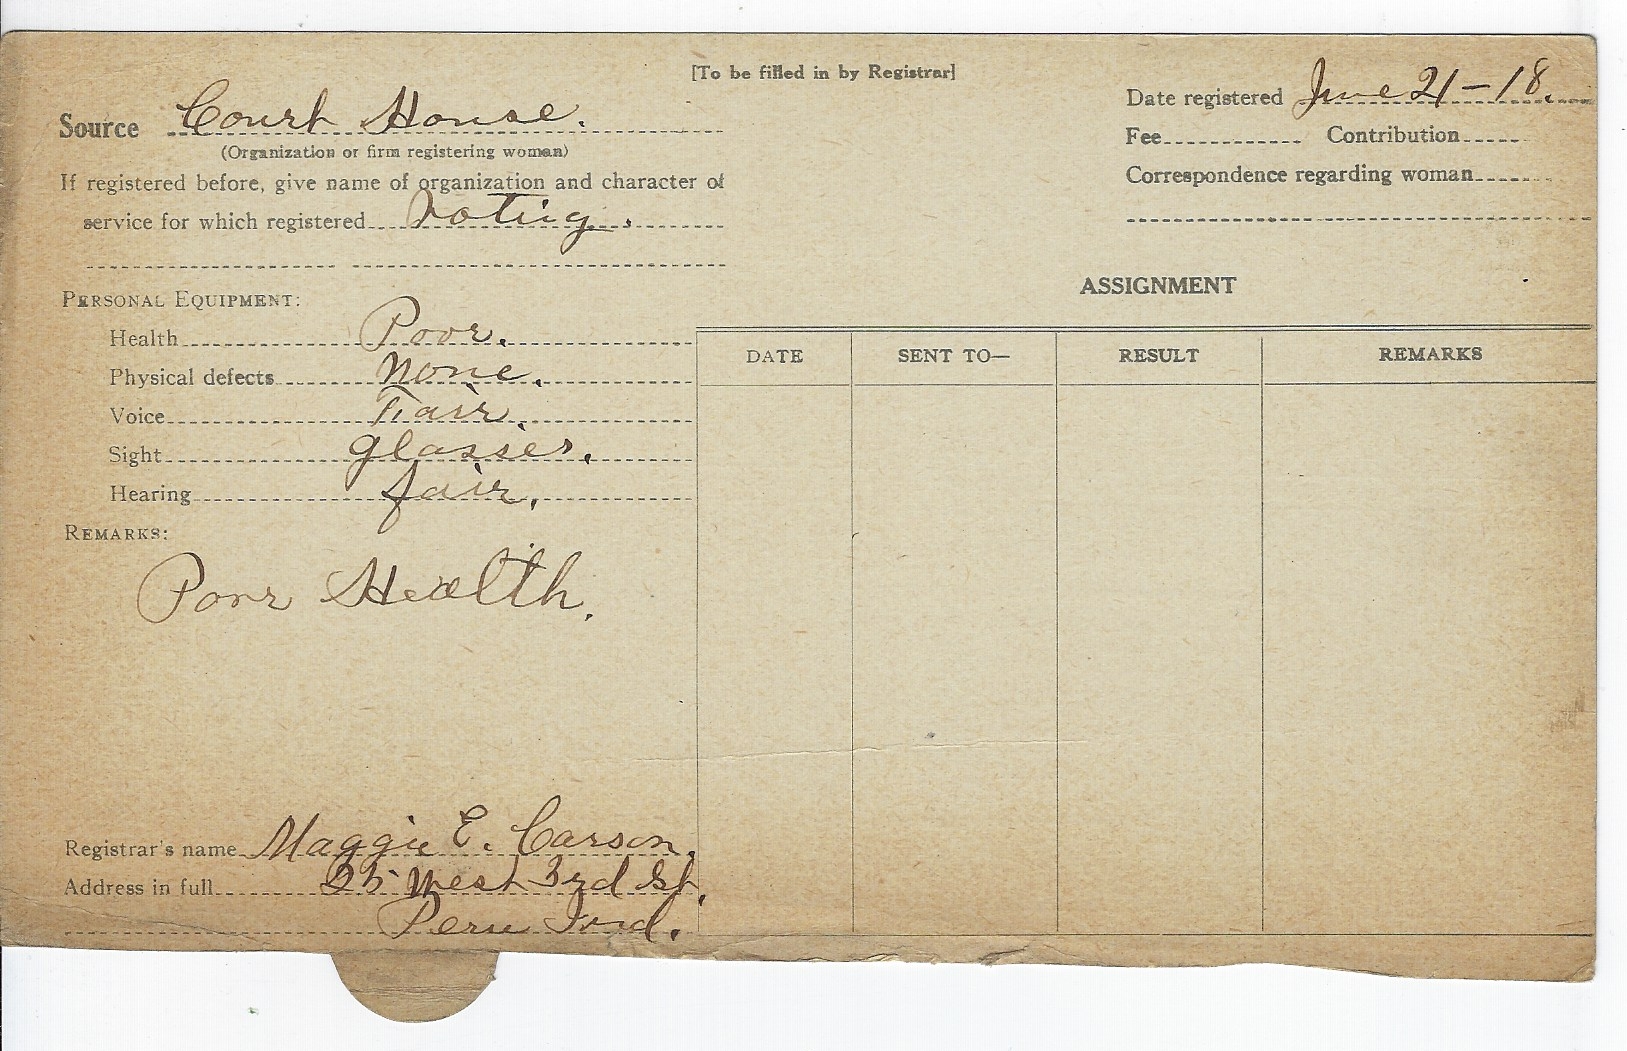 [To be filled in by Registrar]
Source Court House.
(Organization or firm registering woman)
If registered before, give name of organization and character of
service for which registered Voting.
Date registered June 21-18.
Fee Contribution
Correspondence regarding woman
PERSONAL EQUIPMENT:
Health Poor.
Physical defects None.
Voice Fair.
Sight glasses.
Hearing fair.
REMARKS:
Poor Health.
ASSIGNMENT
DATE SENT TO— RESULT REMARKS
Registrar's name Maggie E. Carson.
Address in full 25 West 3rd St.
Peru Ind.